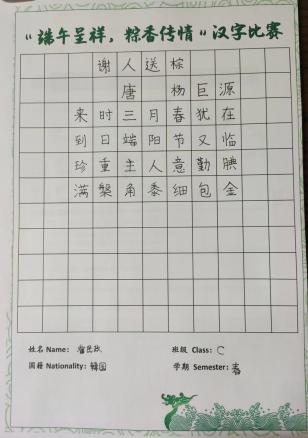 “端午呈祥，粽香传情“汉字比赛
谢人送棕
唐 杨巨源
来时三月春犹在
到日端阳节又临
珍重主人意勤腆
满槃角黍细包金
姓名 Name： 民政
班级 Class： C
国籍 Nationality：韓国
学期 Semester：春